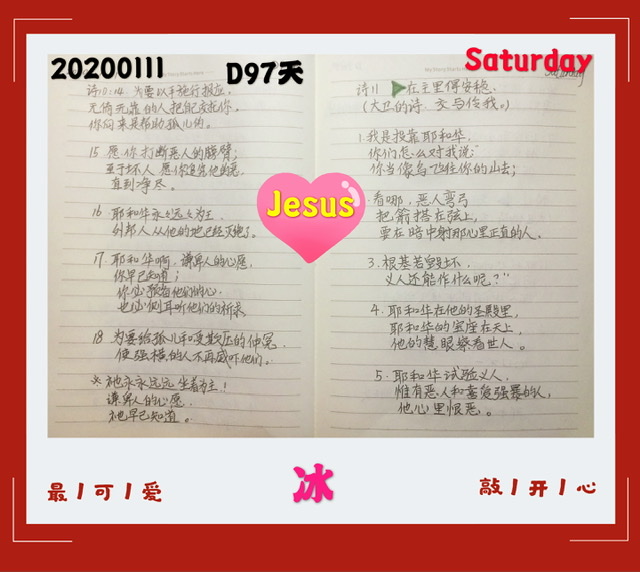 20200111
D97天
Saturday
诗10:14. 为要以手施行报应,
无倚无靠的人把自己交托你,
你向来是帮助孤儿的。
15 愿你打断恶人的膀臂;
至于坏人,愿你追究他的恶,
直到净尽。
16 耶和华永永远远为王,
外邦人从他的地已经灭绝了。
17. 耶和华啊,谦卑人的心愿,
你早已知道;
你必预备他们的心,
也必侧耳听他们的祈求
18 为要给孤儿和受欺压的伸冤,
使强横的人不再威吓他们。
* 祂永永远远坐着为王!
谦卑人的心愿
祂早已知道。
Jesus
诗11 在主里得安稳
(大卫的诗 交与伶长。)
1.我是投靠耶和华,
你们怎么对我说:
你当像鸟飞往你的山去;
看哪,恶人弯弓
把箭搭在弦上,
要在暗中射那心里正直的人。
3.根基若毁坏,
义人还能作什么呢?"
4. 耶和华在他的圣殿里,
耶和华的宝座在天上,
他的慧眼察看世人。
5. 耶和华试验义人,
惟有恶人和喜爱强暴的人,
他心里恨恶。
最|可|爱
冰
敲|开|心